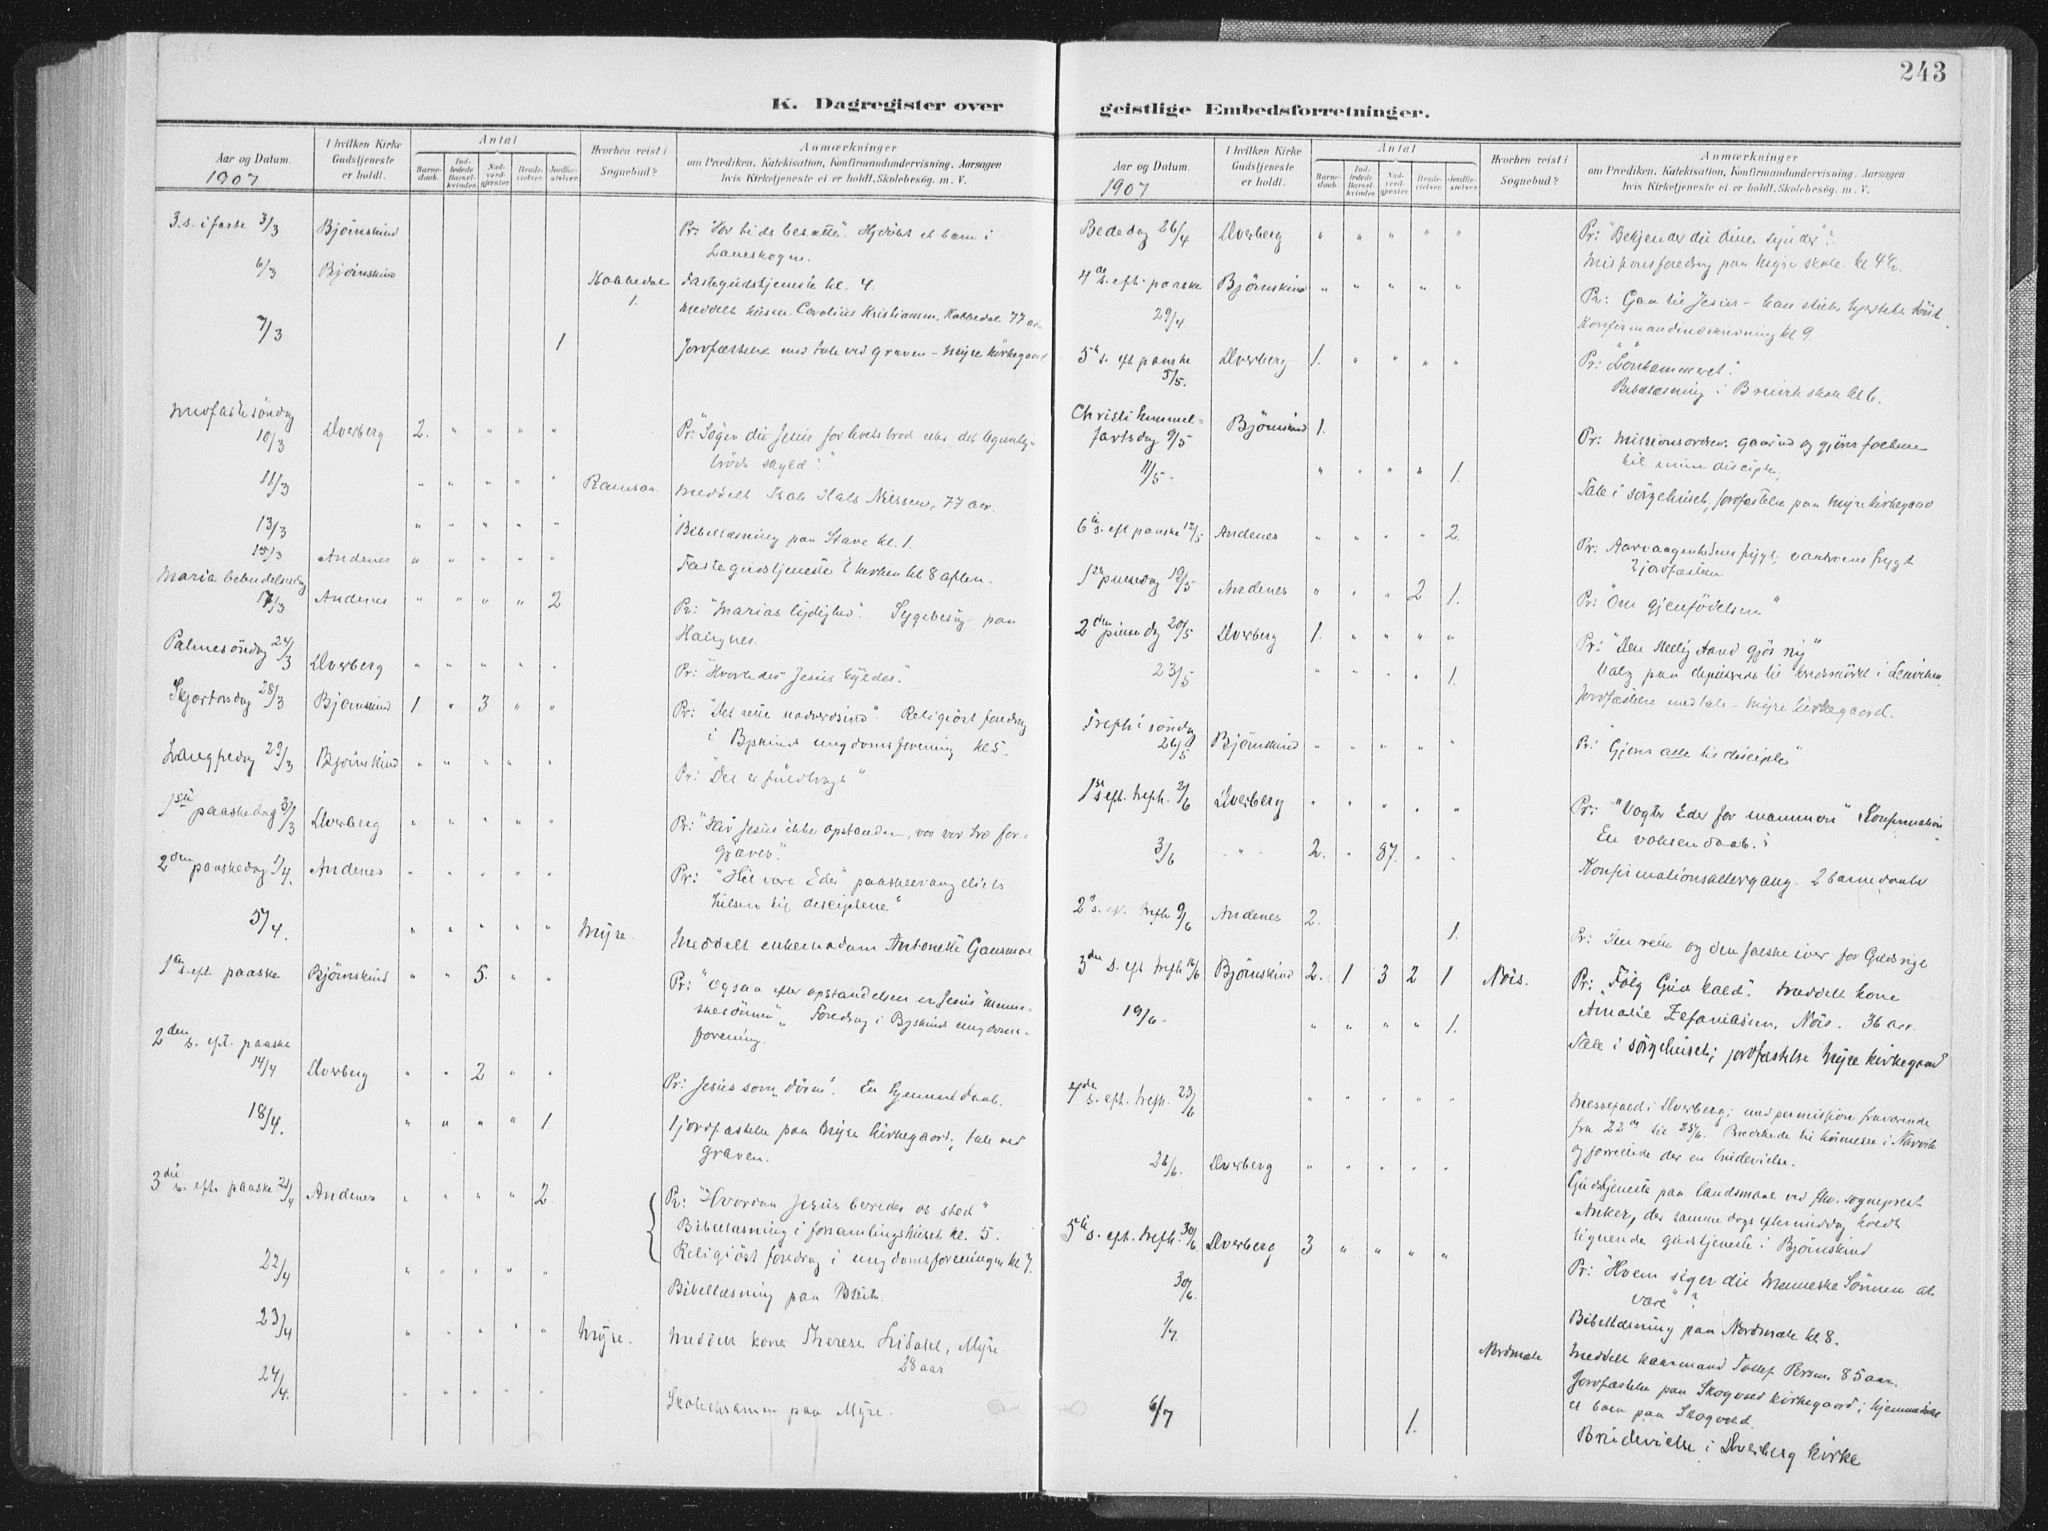 243
K. Dagregister over
Aar og Datum.
1907
I hvilken Kirke
Gudstjeneste
er holdt.
Antal
Barne-
daab.
Ind-
ledede
Barsel-
kvinder.
Nad-
verd-
gjester.
Brude-
vielser.
Jordfæ-
stelser.
Hvorhen reist i
Sognebud?
Anmærkninger
om Prædiken, Katekisation, Konfirmandundervisning, Aarsagen
hvis Kirketjeneste ei er holdt, Skolebesøg. m. V.
3. s. i faste 3/3 Bjørnskind Pr: Hjødøbt et barn i
6/3 Bjørnskind Kobbedal Fastegudstjeneste kl. 4.
1. Meddelt Carolius Kristiansen, Kobbedal 77 aar
7/3 1 Jordfæstelse med tale ved graven - Myre kirkegaard
Midfastesøndag
10/3 Dverberg 2. " " " " Pr: "Søger du Jesus for livets brød eller det legemlige
brøds skyld?"
11/3 " " " " " Ramsaa Meddelt Isak Hals Nilssen, 77 aar.
13/3 " " " " " Bibellæsning paa Stave kl. 1.
15/3 Andenes " " " " " Fastegudstjeneste i kirken kl 8 aften.
Maria bebudelsesdag
17/3 Andenes " " " " 2 Pr: "Marias lydighed". Sygebesøg paa
Haugnes.
Palmesøndag 24/3 Dverberg " " " " " Pr: "Hvorledes Jesus hyldes."
Skjærtorsdag 28/3 Bjørnskind 1 " 3 " " Pr: "Det rette nadverdsind". Religiøst foredrag
i Bjskinds ungdomsforening kl 5.
Langfredag 29/3 Bjørnskind " " " " " Pr: "Det er fuldbragt"
1ste paaskedag 31/3 Dverberg " " " " " Pr: "Blev Jesus ikke opstanden, var vor tro for-
gjæves."
2den paaskedag 1/4. Andenes " " " " " Pr: "Hil være Eder" paaskeevangeliets
hilsen til disciplene"
5/4. " " " " " Myre. Meddelt enkemadam Antonette Gansmoe
1ste s. eft. paaske Bjørnskind " " 5. " " Pr: "Ogsaa efter opstandelsen er Jesus "menne-
skesønnen". Foredrag i Bjskinds ungdoms-
forening.
2den s. eft. paaske
14/4 Dverberg " " 2 " " Pr: Jesus som "døren". En hjemmedaab.
18/4. " " " " 1. 1 jordfæstelse paa Myre kirkegaard, tale ved
graven.
3die s. eft. paaske 21/4 Andenes " " " " 2. Pr: "Hvordan Jesus bereder os sted"
Bibellæsning i forsamlingshuset kl. 5.
Religiøst foredrag i ungdomsforeningen kl 7.
22/4 " " " " " Bibellæsning paa Bleik.
23/4 " " " " " Myre. Meddelt kone Therese Lidahl, Myre
28 aar
24/4. " " " " " Skoleeksamen paa Myre.
geistlige Embedsforretninger.
Aar og Datum.
1907
I hvilken Kirke
Gudstjeneste
er holdt.
Antal
Barne-
daab.
Ind-
ledede
Barsel-
kvinder.
Nad-
verd-
gjester.
Brude-
vielser.
Jordfæ-
stelser.
Hvorhen reist i
Sognebud?
Anmærkninger
om Prædiken, Katekisation, Konfirmandundervisning, Aarsagen
hvis Kirketjeneste ei er holdt, Skolebesøg. m. V.
Bededag 26/4 Dverberg " " " " " Pr: "Bekjender du dine synder"?
Missionsforedrag paa Myre skole kl 4 1/2.
4de s. eft. paaske Bjørnskind " " " " " Pr: Gaa til Jesus - han
29/4 Konfirmandindskrivning kl 9.
5te s. eft paaske Dverberg 1. " " " " Pr: "Lønkammeret".
5/5. Bibellæsning i Breivik skole kl 6.
Christi himmel-
fartsdag 9/5 Bjørnskind 1. Pr: Missionsordren, gaa ud og gjører folkene
til mine disciple.
11/5. " " " " 1. Tale i sørgehuset, jordfæstelse paa Myre kirkegaard
6te s. eft paaske 12/5 Andenes " " " " 2. Pr: Aarvaagenhedens frygt, vantroens frygt
2 jordfæstelser
1ste pinsedag 19/5 Andenes " " " 2 1. Pr: "Om gjenfødelsen"
2den pinsedag 20/5 Dverberg 1. " " " " Pr: "Den Hellig Aand gjør ny"
Valg paa deputerede til kredsmødet i
23/5 " " " " 1. Jordfæstelse med tale - Myre kirkegaard.
Trefh.s søndag
26/5 Bjørnskind " " " " " Pr: "Gjører alle til disciple"
1ste s. eft. trefh. 2/6 Dverberg " " " " " Pr: "Vogter Eder for mammon" Konfirmation
En voksendaab.
3/6 " " 2. " 87. " " Konfirmationsaltergang. 2 barnedaaber
2den s. ef. trefh. 9/6 Andenes 2. 1. Pr: Den rette og den falske iver for Guds rige
3die s. eft trefh 16/6 Bjørnskind 2. 1 3 2 1 Nøis. Pr: "Følg Guds kald". Meddelt kone
Amalie Zefaniassen, Nøis. 36 aar.
19/6. " " " " 1. Tale i sørgehuset; jordfæstelse Myre kirkegaard
4de s. eft. trefh. 23/6 " " " " " Messefald i Dverberg; med permission fraværende
fra 22de til 25/6. Prædikede til høimesse i Narvik
og forrettede der en brudevielse.
26/6. Dverberg " " " " " Gudstjeneste paa landsmaal ved fhv. sogneprest
Anker, der samme dags eftermiddag holdt
lignende gudstjeneste i Bjørnskind
5te s. eft. trefh. 30/6. Dverberg 3 " " " " Pr: "Hvem siger du Menneskesønnen at
være"?
30/6. Bibellæsning paa Nordmæle kl 8.
1/7. Nordmæle Meddelt kaarmand Tollef Persen, 85 aar.
Jordfæstelse paa Skogvold kirkegaard; hjemmedøbt
et barn paa Skogvold.
6/7 1. Brudevielse i Dverberg kirke